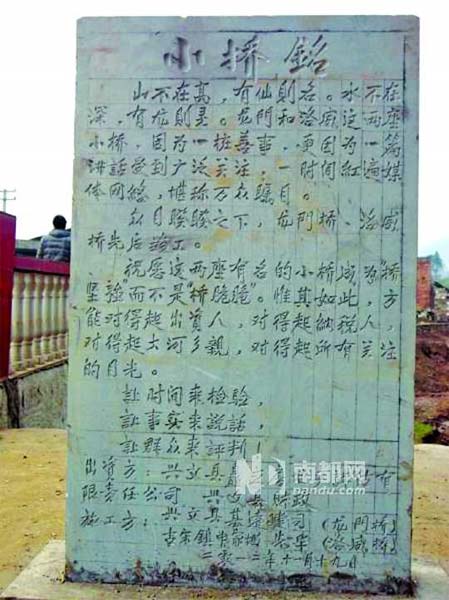 小桥銘
山不在高，有仙則名。水不在
深，有龙則灵。龙門和洛威这两座
小桥，因为一桩善事，更因为一篇
讲話受到广泛关注，一时间紅遍媒
体网络，堪称万众瞩目。
众目睽睽之下，龙門桥、洛威
桥先后竣工。
祝愿这两座有名的小桥成为"桥
坚强而不是"桥脆脆"。惟其如此，方
能对得起出資人，对得起納税人，
对得起大河乡親，对得起所有关注
的目光。
让时间来检驗，
让事实来說話，
让群众来評判！
出資方：兴文县 有
限责任公司 兴文县 政
施工方：兴文县基 司（龙門桥）
古宋鎮 （洛威桥）
二零一二年十一月十九日
南都网
nandu.com